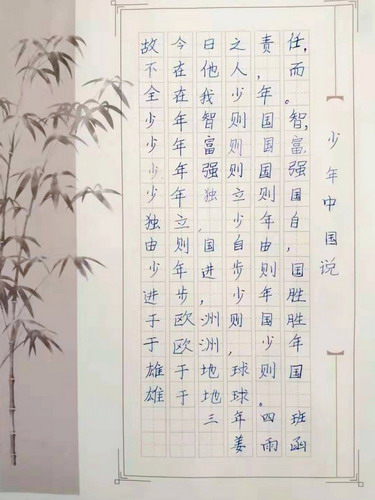 少年中国说
故今日之责任,
不在他人,而
全在我少年。
少年智则国智,
少年富则国富,
少年强则国强
少年独立则国
独立,少年自
由则国自由,
少年进步则国
进步,少年胜
于欧洲则国胜
于欧洲,少年
雄于地球则国
雄于地球。
三年四班
姜雨函